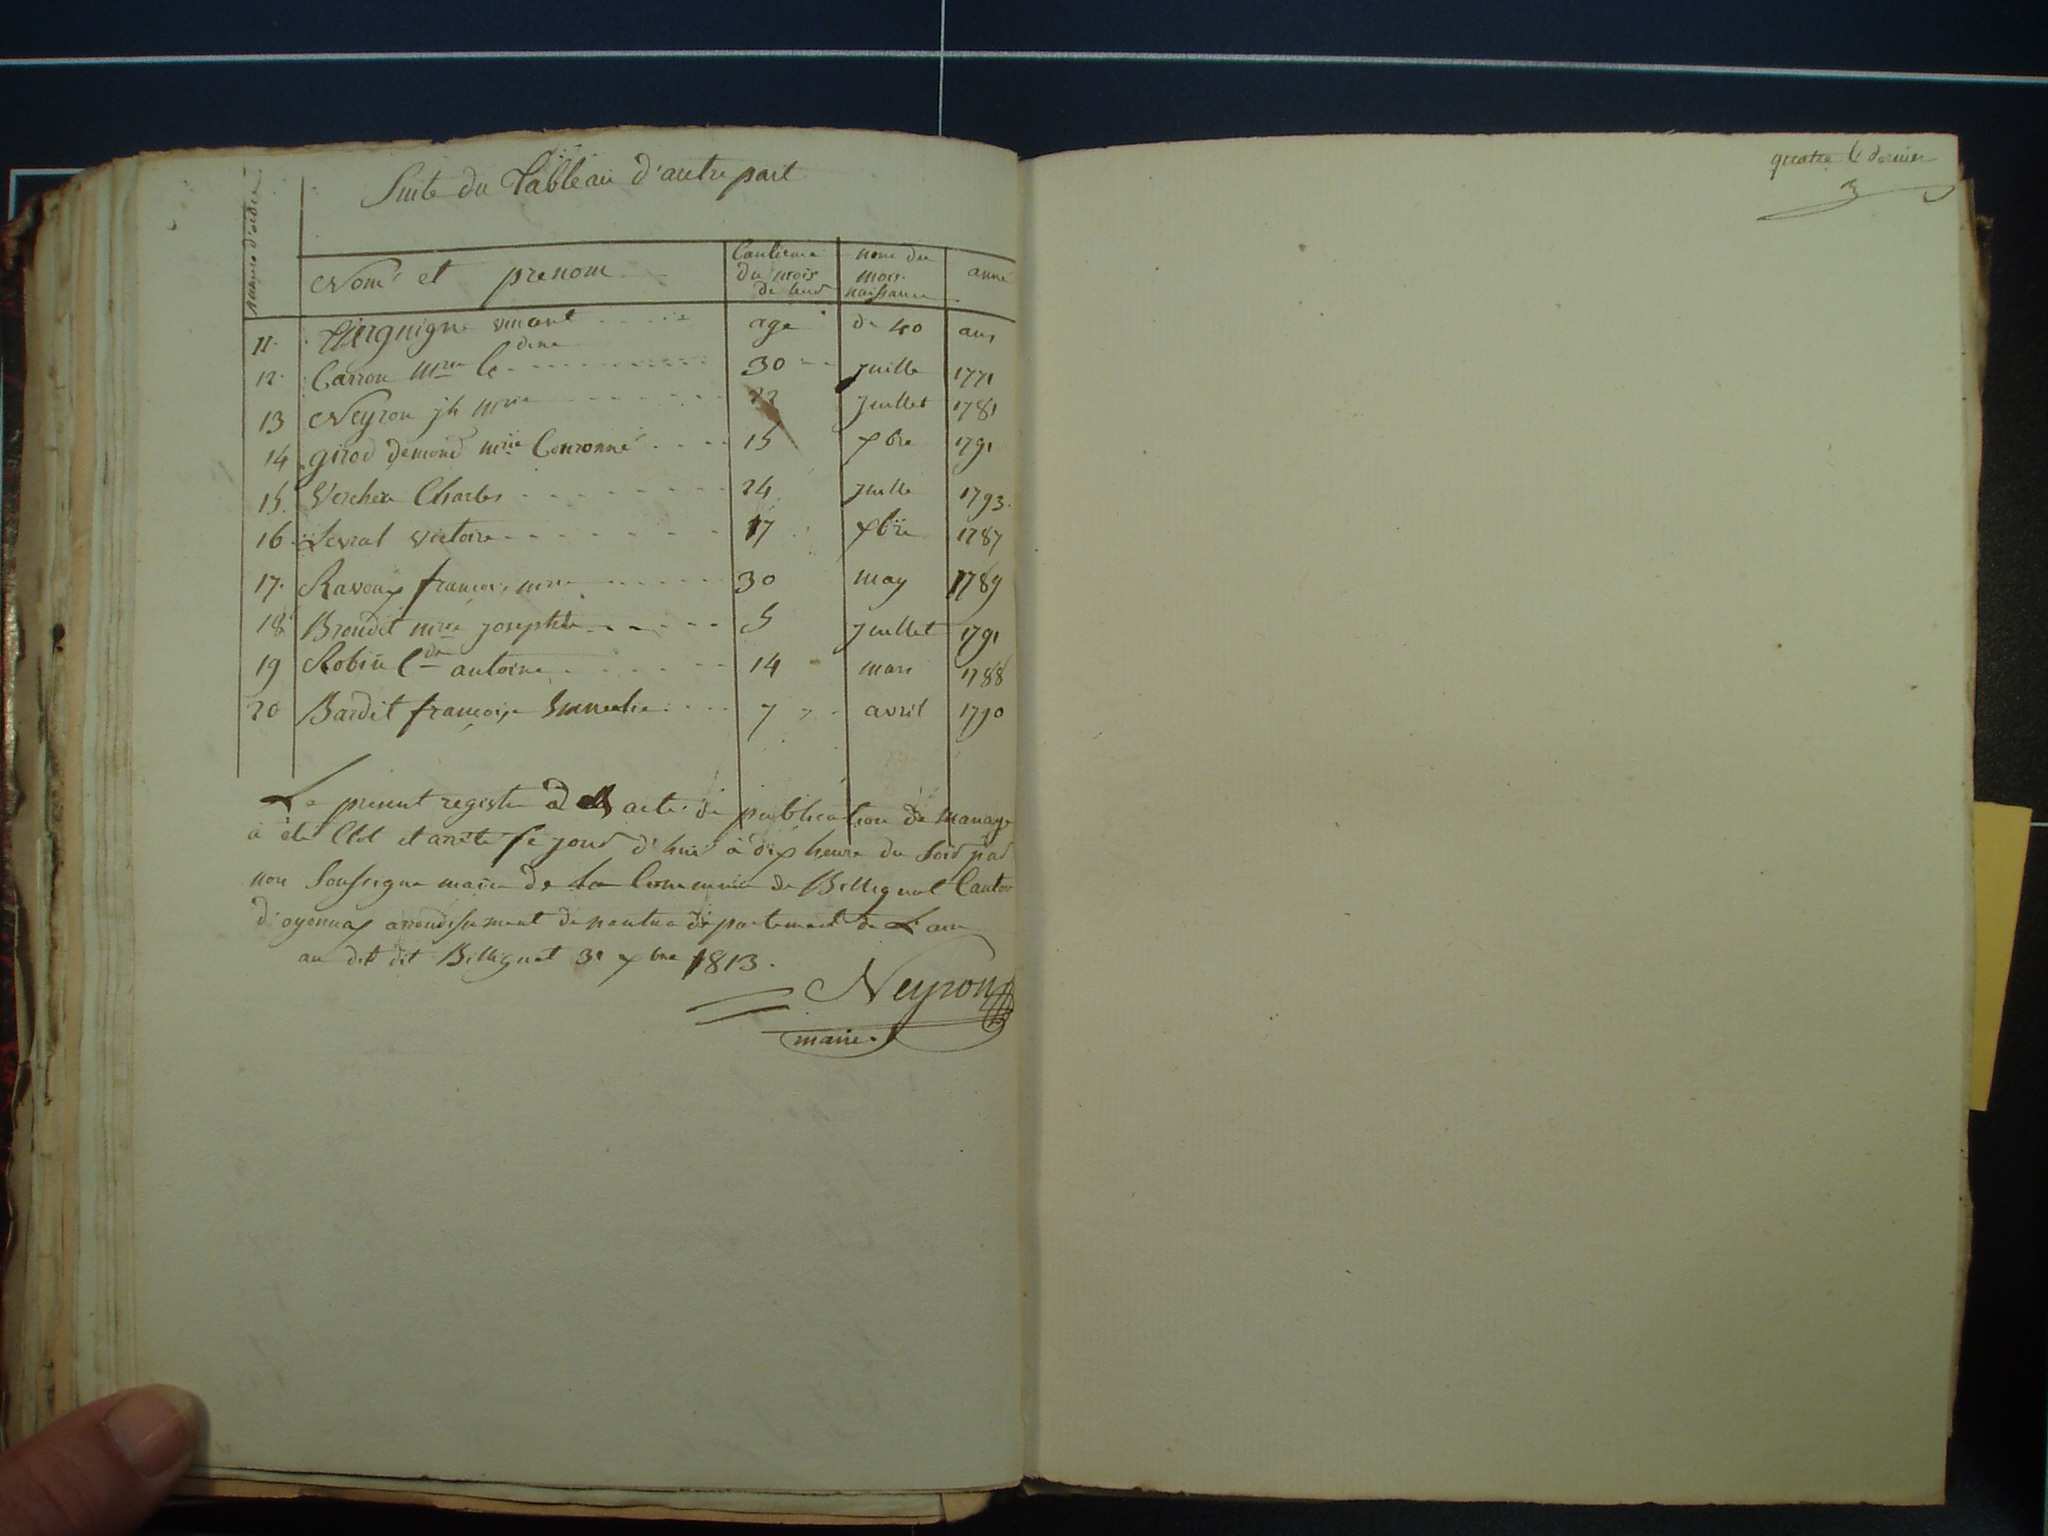 Suite du Tableau d'autre part
numero d'ordre
Nom et prenom
Cantieme du mois de leur
nom du mois naissance
anné
11. vincent age de 40 ans
12. Carron mrie Cdine 30 Juille 1771
13 Neyron jh mrie 22 Juillet 1781
14 girod demond mrie Couronné 15 xbre 1791
15. Vercher Charles 24 Juille 1793.
16 Levrat victoire 17 xbre 1787
17. Ravoux francois mrie 30 may 1789
18 Brondit mrie josephte 5 Juillet 1791
19 Robin Cde antoine 14 mars 1788
20 Bardit françoise 7 avril 1790
Le present registre d acte de publication de mariage
à eté Clot et arrêté ce jour d'hui à dix heure du soir par
nou soussigne maire de la Commune de Bellignat Canton
d'oyonnax arrondissement de nantua departement de L'ain
au dit Bellignat 31 xbre 1813.
Neyron
maire.
quatre & dernier